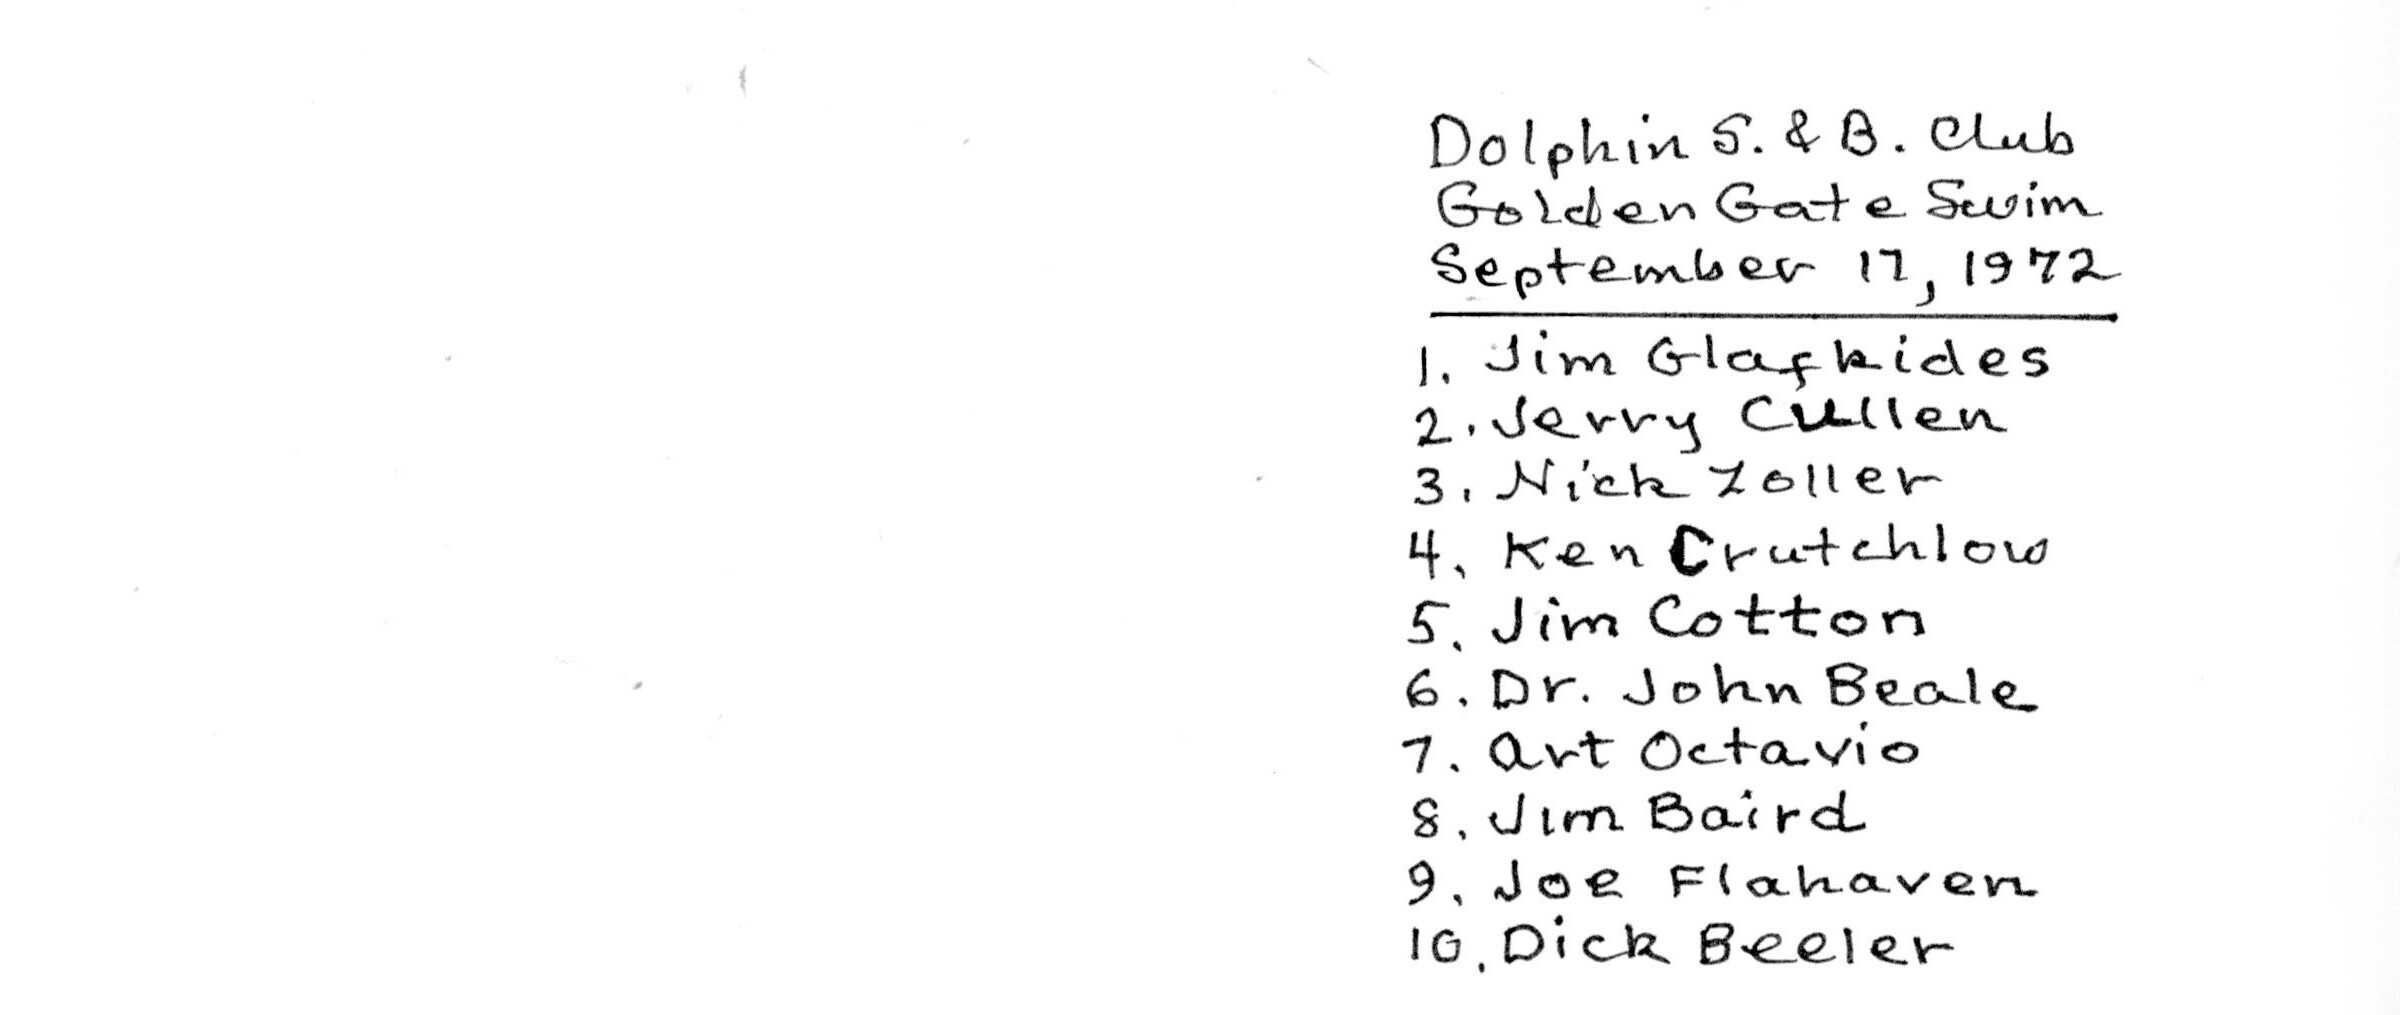 Dolphin S. & B. Club
Golden Gate Swim
September 17, 1972
1. Jim Glafkides
2. Jerry Cullen
3. Nick Zoller
4. Ken Crutchlow
5. Jim Cotton
6. Dr. John Beale
7. Art Octavio
8. Jim Baird
9. Joe Flahaven
10. Dick Beeler